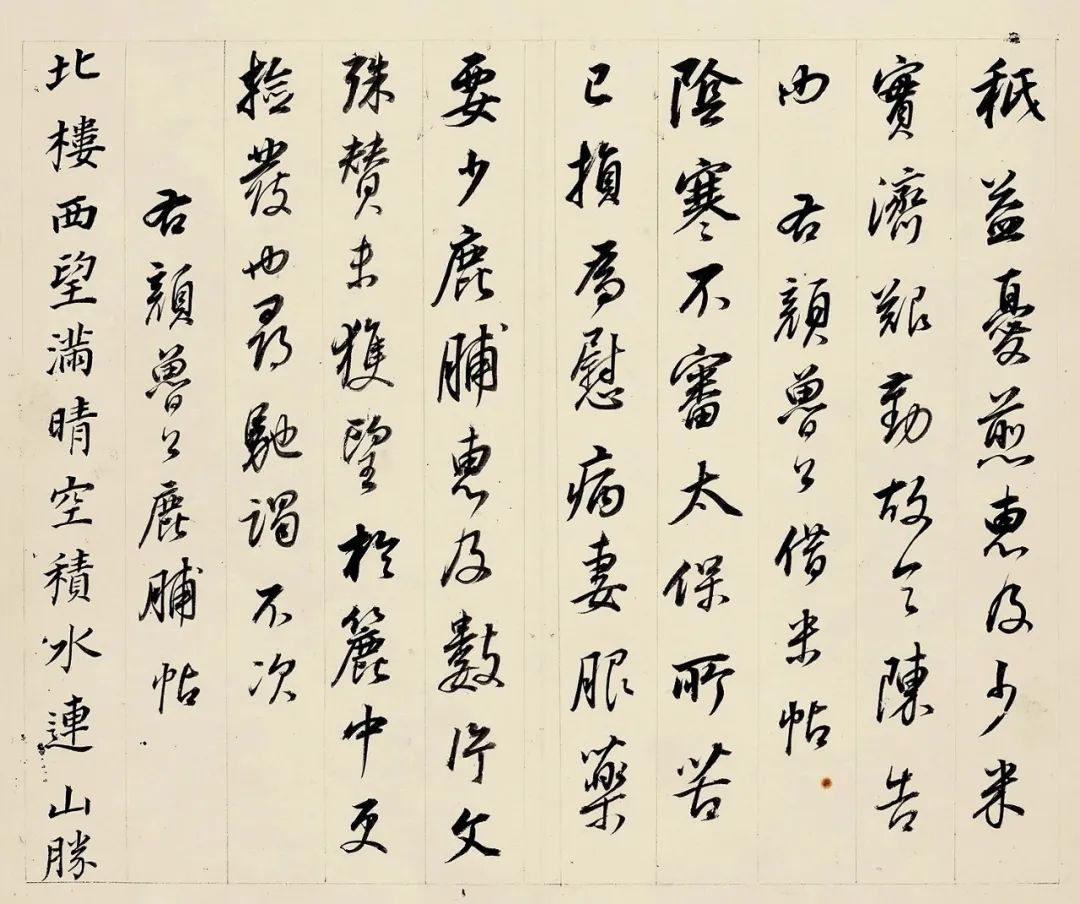 秖益憂煎惠及少米
實濟艱勤故令陳告
内 右顔魯公借米帖
陰寒不審太保所苦
已損爲慰病妻服藥
要少鹿脯惠及數片文
殊贊未獲望於簏中更
撿發也尋馳謁不次
右顔魯公鹿脯帖
北樓西望滿晴空積水連山勝